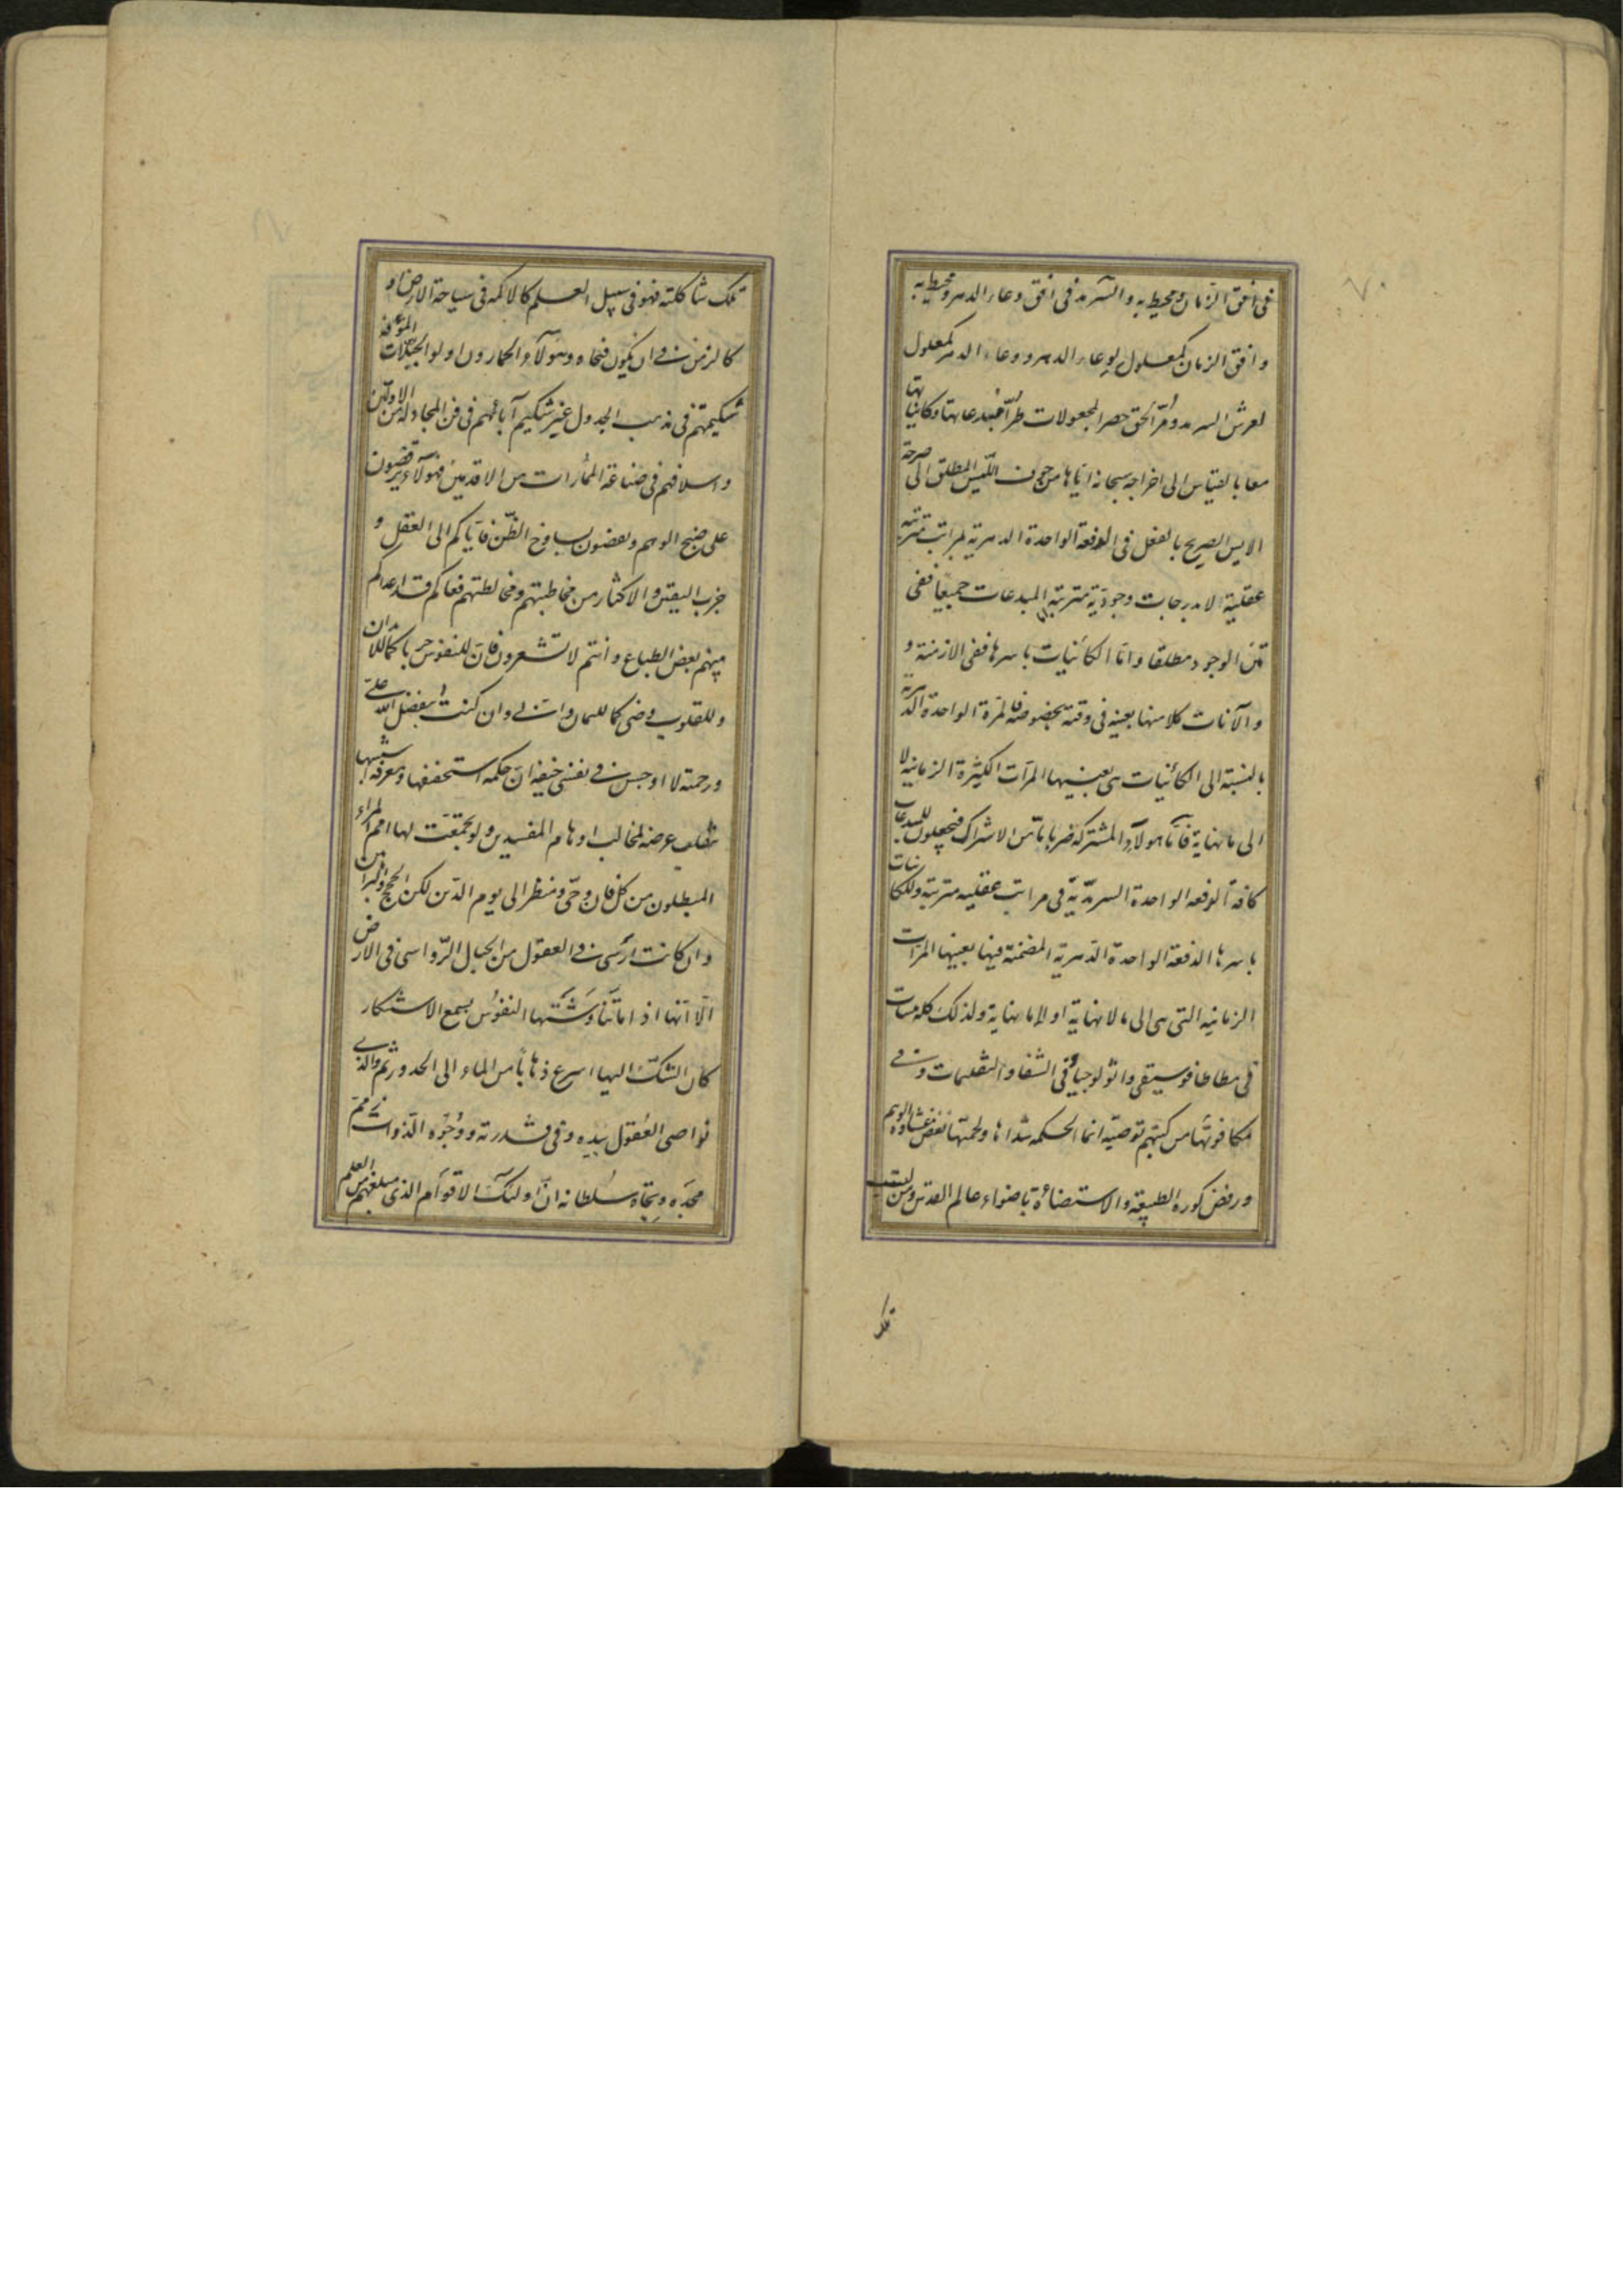 فی افق الزمان و محیط به و السرمد فی افق وعاء الدهر و محیط به
و افق الزمان کمعلول لوعاء الدهر و وعاء الدهر کمعلول
لعرش السرمد و مُرّ الحق حصر المجعولات طُرّاً مُبدعاتها و کایناتها
معا بالقیاس الی اخراجه سبحانه ایّاها من جوف اللّیس المطلق الی صرحة
الایس الصریح بالفعل فی الدفعة الواحدة الدهریة لمراتب مترتبه
عقلیة لا بدرجات وجودیّة مترتبة المبدعات جمیعاً ففی
متن الوجود مطلقا و اما الکائنات باسرها ففی الازمنة و
و الآنات کلا منها بعینه فی وقته بخصوصه فالمرة الواحدة الدهریة
بالنسبة الی الکائنات هی بعینها المرّات الکثیرة الزمانیة لا
الی نهایة فامّا هؤلاء المشترکة ضربا بأس الاشراک فیجعلون للمبدعات
کافة الدفعه الواحدة السرمدیّة فی مراتب عقلیه مترتبة و للکائنات
باسرها الدفعة الواحدة الدّهریة المضمنة فیها بعینها المرّات
الزمانیه التی هی الی ما لا نهایة او لا الی نهایة و لذلک کله میقات
فی مطاطافوسیقی و اثولوجیا و فی الشفا و التعلیقات و فی
مکافوتها من کتبهم توصیّه انما الحکمه شداها و لحمتها نفض غشاوة الوهم
و رفض کوره الطبیعة و الاستضاءة باضواء عالم القدس و من لیست
تلک
تلک شاکلته فهو فی سبیل العلم کالاکمه فی سیاحة الارض او
کالزمن فی ان یکون فتحاه و هؤلاء الحمارون اولو الجبلات المؤفة
شکیمتهم فی مذهب الجدل غیر شکیم آبائهم فی فن المجادله من الاولین
و اسلافهم فی صناعة المُمارات من الاقدمین فهؤلاء یرقصون
علی ضبح الوهم و یعضون بساوخ الظّن فایّاکم الی العقل و
حزب الیقین و الاکثار من مخاطبتهم و مخالطتهم فعاکم قد اعداکم
منهم بعض الطباع و انتم لا تشعرون فانّ للنفوس جربا کما للابدان
و للقلوب وضی کما للسان و انی و ان کنت بفضل الله علیّ
و رحمته لا اوجس فی نفسی خیفة ان حکمه استحفظها و معرفه اسسها
تتقلب عرضه لمخالب اوهام المفسدین و لو تجمّعت لها امم المراء
المبطلون من کل فان و حیّ و منظر الی یوم الدّین لکن الحجج و البراهین
و ان کانت ارسی فی العقول من الجبال الرّواسی فی الارض
الّا انّها اذا ما تناوشتها النفوس بسمع الاستنکار
کان الشکّ الیها اسرع ذهابا من الماء الی الحدور ثم و الذی
نواصی العقول بیده و فی قدرته و وُجوه الذوات فی همّ
مجده و تجاه سُلطانه انّ اولئک الاقوام الذی مبلغهم من العلم